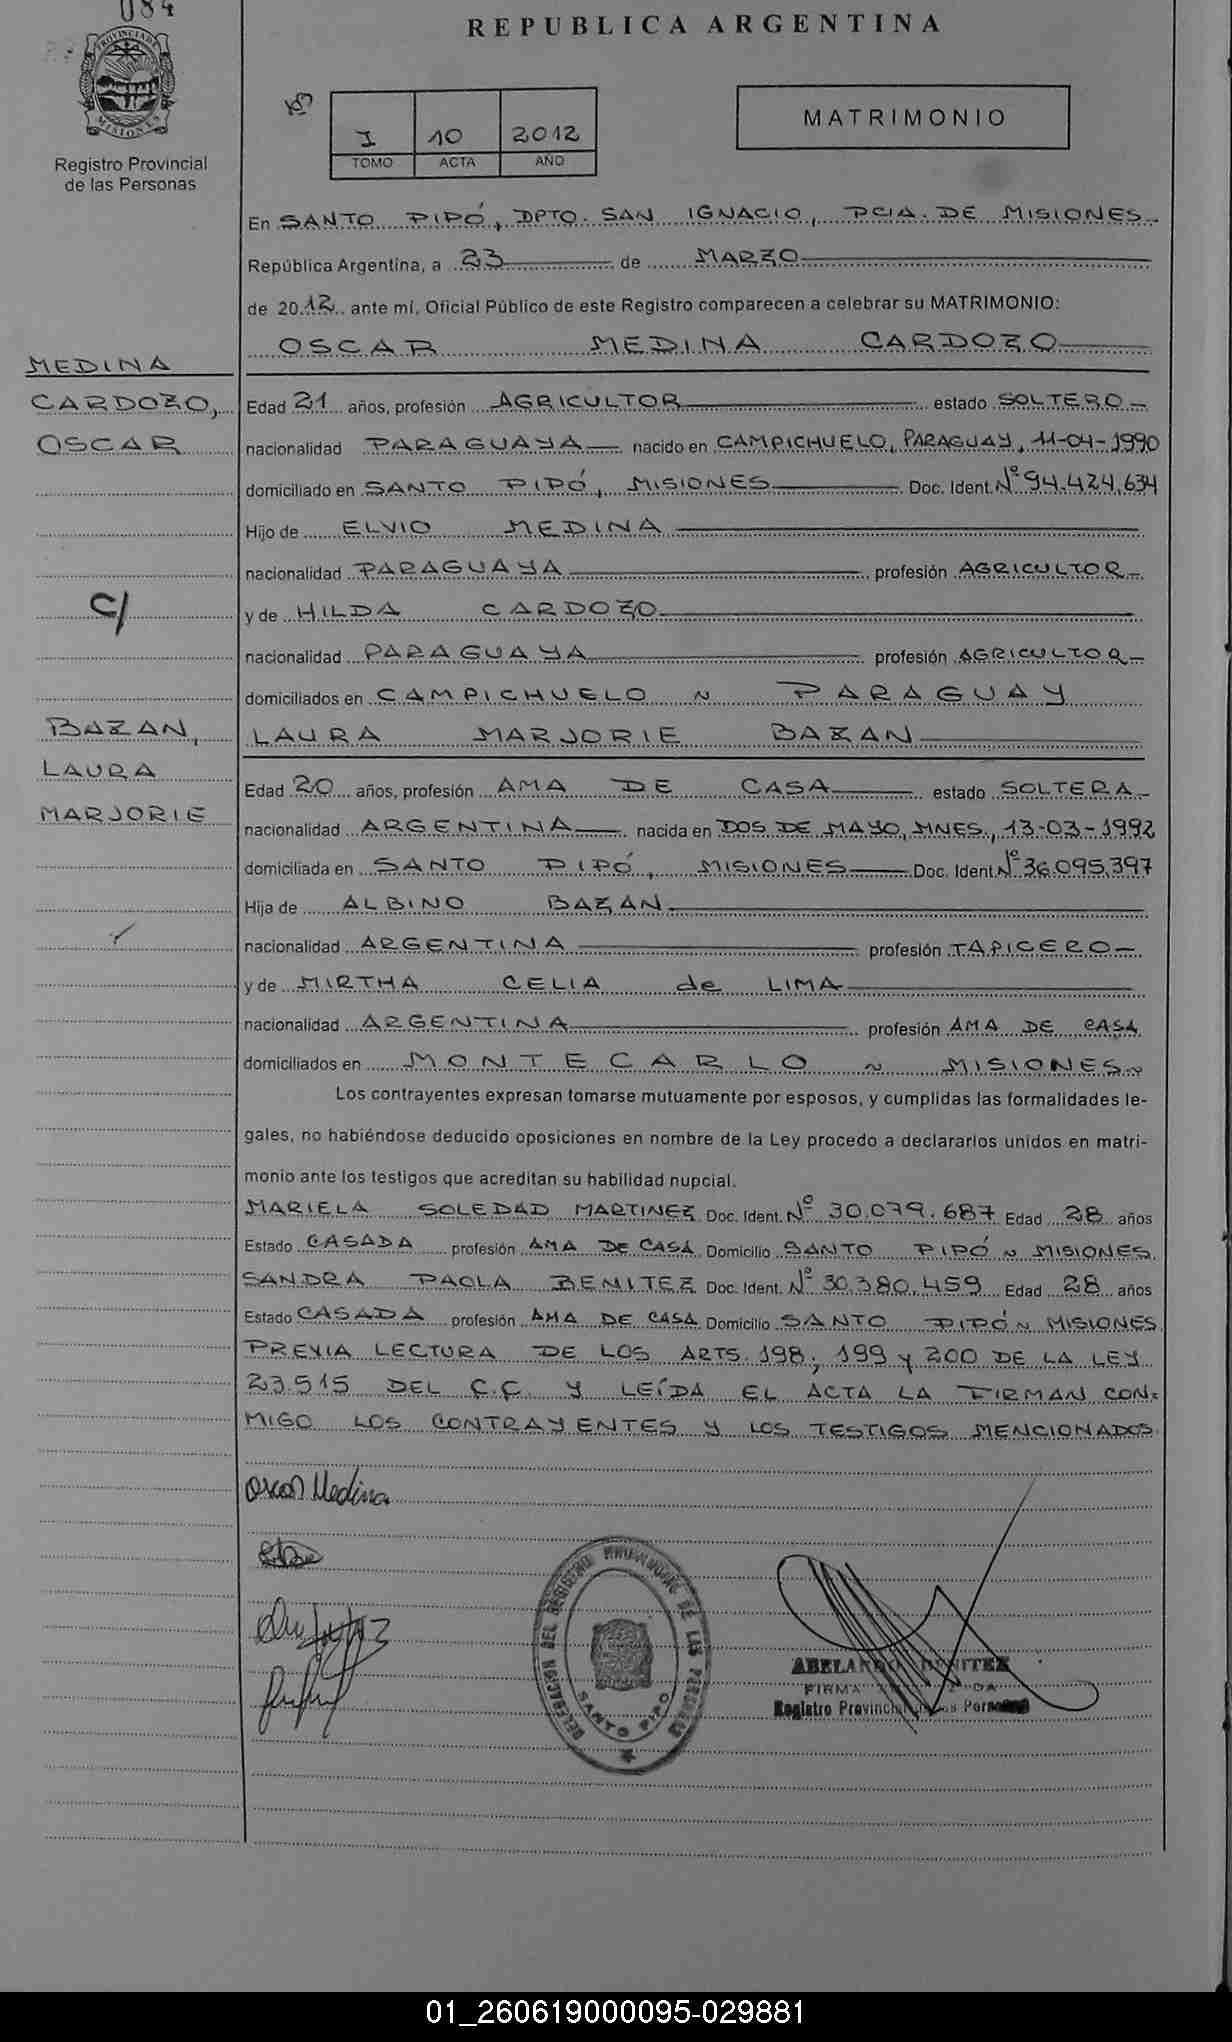 084
REPUBLICA ARGENTINA
PROVINCIA DE MISIONES
Registro Provincial
de las Personas
I 10 2012
TOMO ACTA AÑO
MATRIMONIO
En SANTO PIPÓ, DPTO. SAN IGNACIO, PCIA. DE MISIONES
República Argentina, a 23 de MARZO
de 2012 ante mí, Oficial Público de este Registro comparecen a celebrar su MATRIMONIO:
OSCAR MEDINA CARDOZO
MEDINA
CARDOZO,
OSCAR
Edad 21 años, profesión AGRICULTOR estado SOLTERO
nacionalidad PARAGUAYA nacido en CAMPICHUELO, PARAGUAY, 11-04-1990
domiciliado en SANTO PIPÓ, MISIONES Doc. Ident. Nº 94.424.634
Hijo de ELVIO MEDINA
nacionalidad PARAGUAYA profesión AGRICULTOR
C/
y de HILDA CARDOZO
nacionalidad PARAGUAYA profesión AGRICULTOR
domiciliados en CAMPICHUELO ~ PARAGUAY
BAZAN,
LAURA
MARJORIE
LAURA MARJORIE BAZAN
Edad 20 años, profesión AMA DE CASA estado SOLTERA
nacionalidad ARGENTINA nacida en DOS DE MAYO, MNES., 13-03-1992
domiciliada en SANTO PIPÓ, MISIONES Doc. Ident. Nº 36.095.397
Hija de ALBINO BAZAN
nacionalidad ARGENTINA profesión TAPICERO
y de MIRTHA CELIA de LIMA
nacionalidad ARGENTINA profesión AMA DE CASA
domiciliados en MONTECARLO ~ MISIONES ~
Los contrayentes expresan tomarse mutuamente por esposos, y cumplidas las formalidades le-
gales, no habiéndose deducido oposiciones en nombre de la Ley procedo a declararlos unidos en matri-
monio ante los testigos que acreditan su habilidad nupcial.
MARIELA SOLEDAD MARTINEZ Doc. Ident. Nº 30.079.687 Edad 28 años
Estado CASADA profesión AMA DE CASA Domicilio SANTO PIPÓ ~ MISIONES.
SANDRA PAOLA BENITEZ Doc. Ident. Nº 30.380.459 Edad 28 años
Estado CASADA profesión AMA DE CASA Domicilio SANTO PIPÓ ~ MISIONES
PREVIA LECTURA DE LOS ARTS. 198, 199 y 200 DE LA LEY
23.515 DEL C.C. Y LEÍDA EL ACTA LA FIRMAN CON=
MIGO LOS CONTRAYENTES Y LOS TESTIGOS MENCIONADOS.
Oscar Medina
DELEGACION DEL REGISTRO PROVINCIAL DE LAS PERSONAS
SANTO PIPO
ABELARDO BENITEZ
FIRMA
Registro Provincial de las Personas
01_260619000095-029881